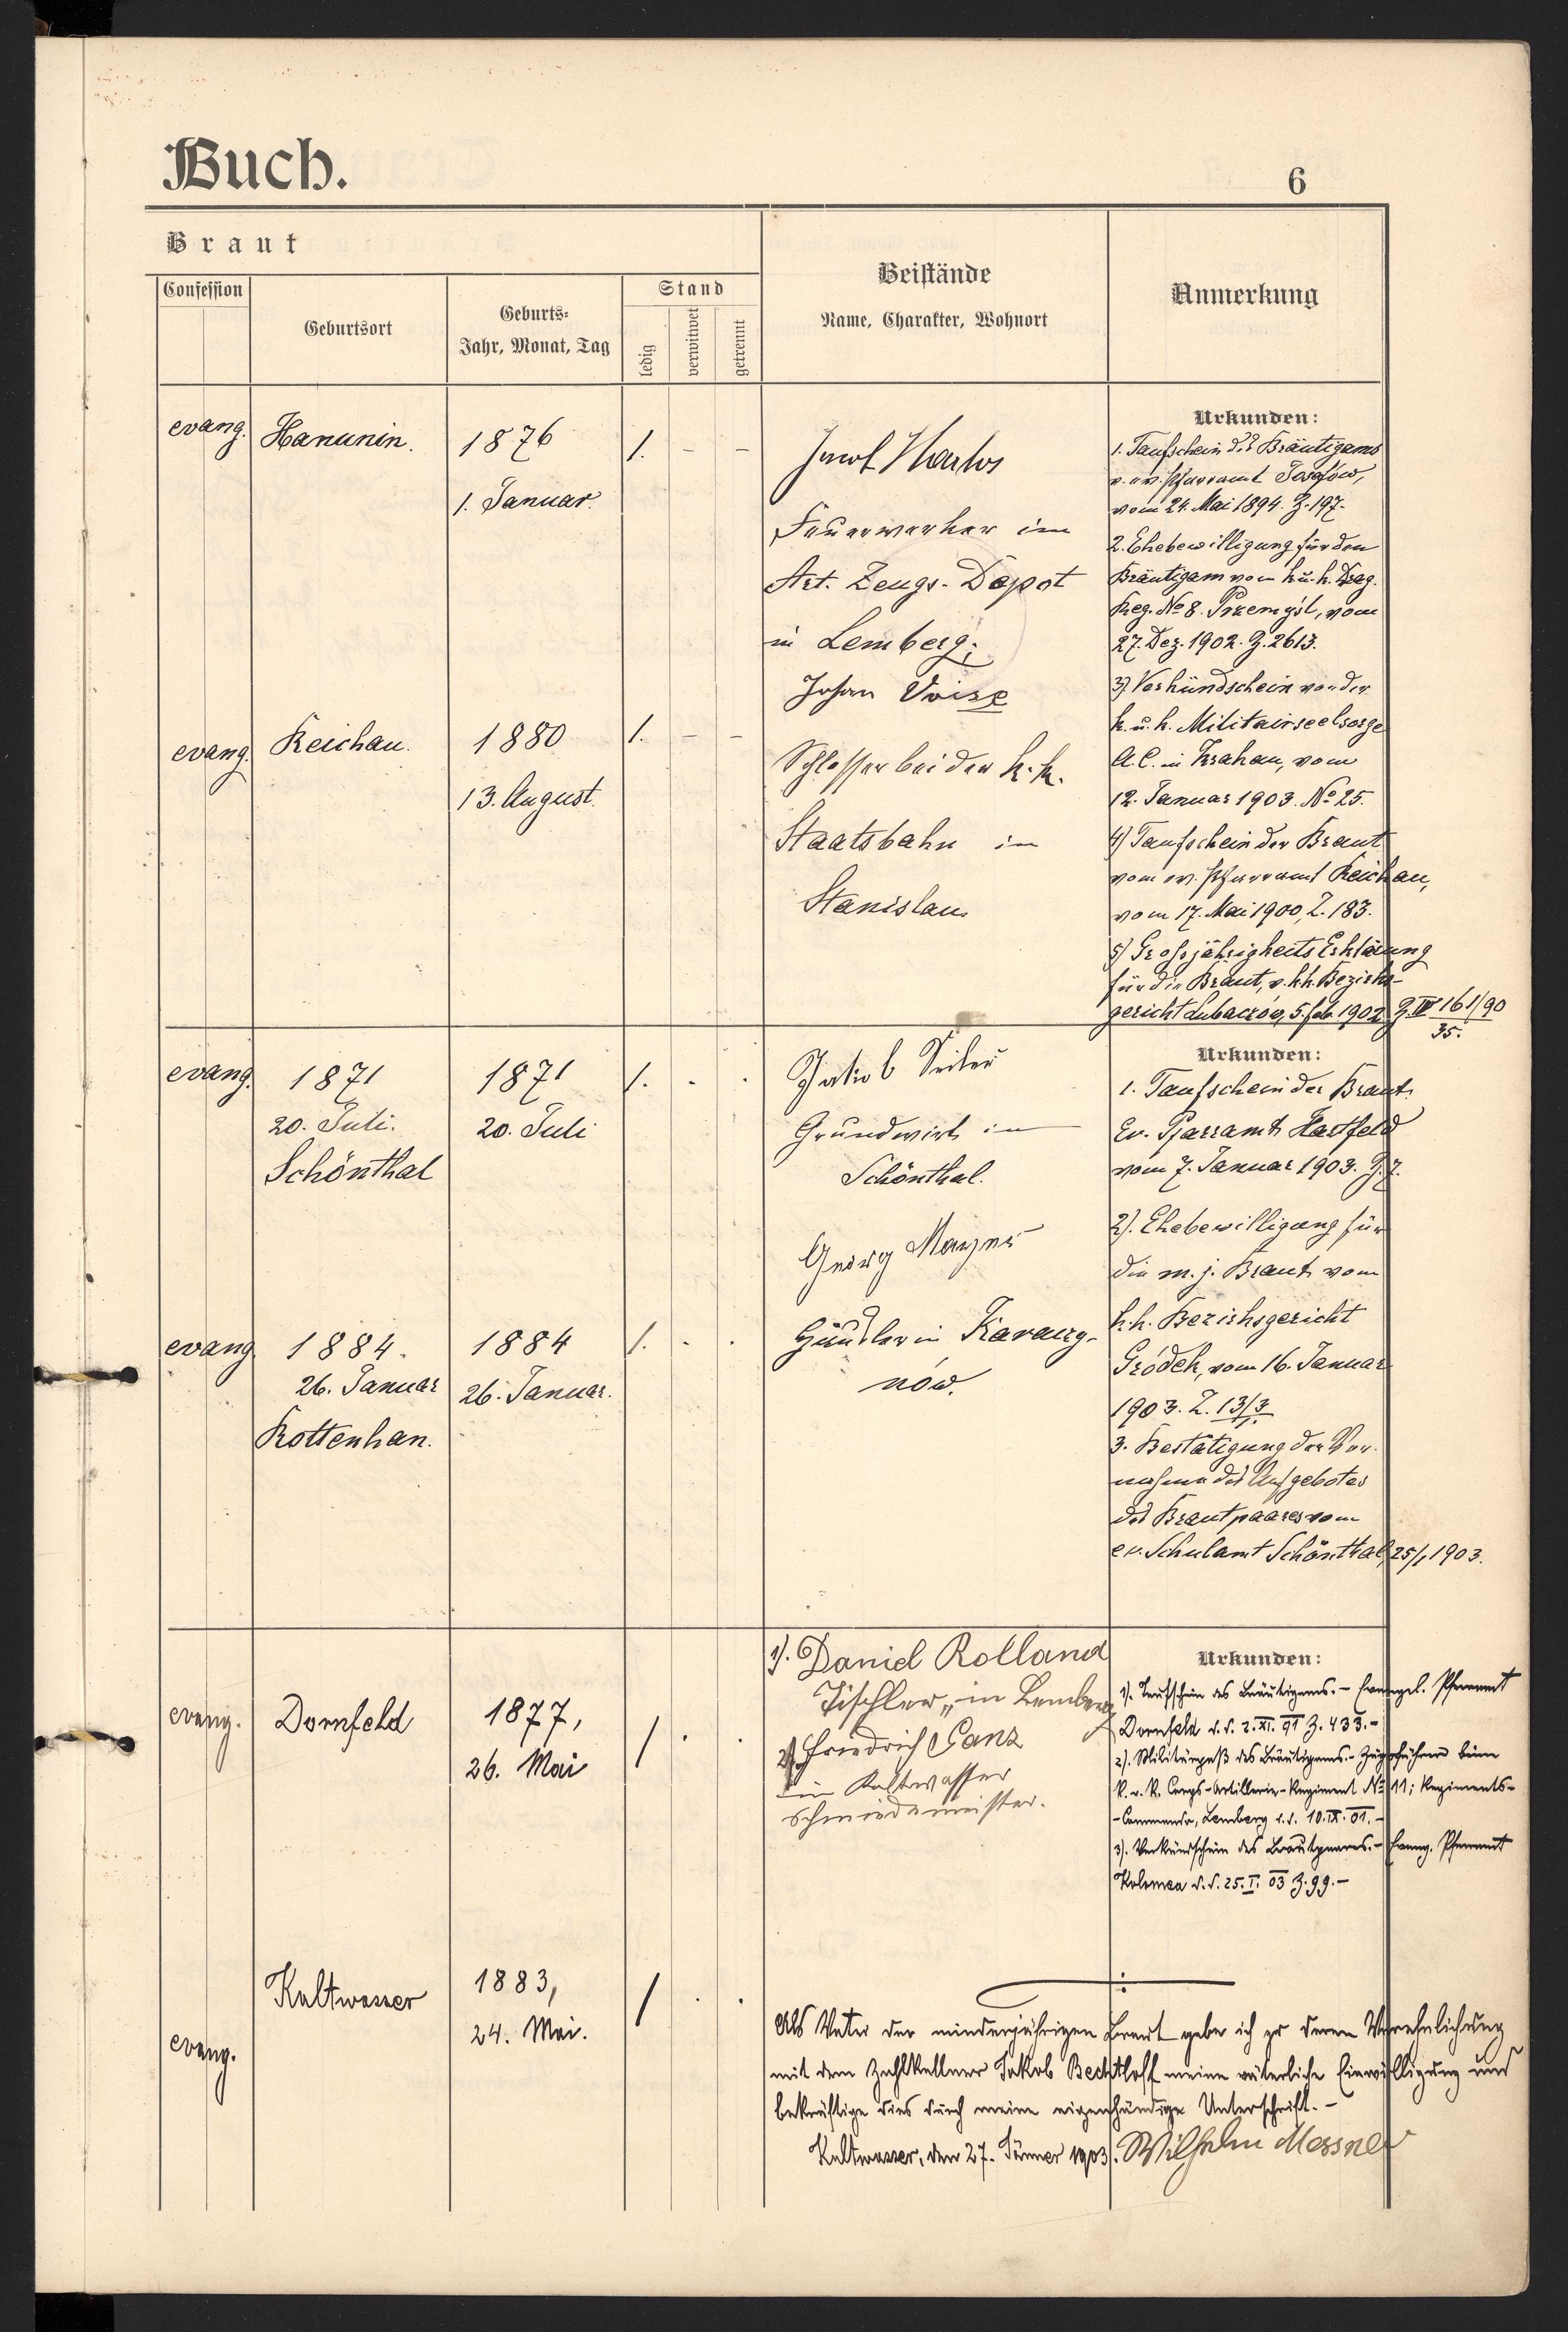 Buch.
6
Braut
Confession
Geburtsort
Geburts-
Jahr, Monat, Tag
Stand
ledig
verwitwet
getrennt
Beistände
Name, Charakter, Wohnort
Anmerkung
evang.
Hanunin.
1876
1. Januar.
1. – –
evang.
Reichau.
1880
13. August.
1. – –
Jacob
Feuerwerker im
Art. Zeugs-Depot
in Lemberg;
Johan
Schlosser bei der k. k.
Staatsbahn in
Stanislau
Urkunden:
1. Taufschein des Bräutigams
v. ev. Pfarramt Josefów,
vom 24. Mai 1894. Z. 197.
2. Ehebewilligung für den
Bräutigam vom k. u. k. Drag.
Reg. No 8. Przemyśl, vom
27. Dez. 1902. Z. 2613.
3) Verkündschein von der
k. u. k. Militairseelsorge
A. C. in Krakau, vom
12. Januar 1903. No 25.
4) Taufschein der Braut
vom ev. Pfarramt Reichau,
vom 17. Mai 1900, Z. 183.
5) Grossjährigkeits Erklärung
für die Braut, v. k. k. Bezirks-
gericht Lubaczów, 5. Feb. 1902 Z. IV 161/90
35.
evang.
1871
20. Juli.
Schönthal
1871
20. Juli
1. . .
evang.
1884.
26. Januar
Rottenhan.
1884
26. Januar.
1. . .
Jakob Seiler
Grundwirth in
Schönthal.
Georg Mayner
in
nów.
Urkunden:
1. Taufschein der Braut
Ev. Pfarramt Hartfeld
vom 7. Januar 1903. Z. 7.
2). Ehebewilligung für
die m. j. Braut vom
k. k. Bezirksgericht
Gródek, vom 16. Januar
1903. Z. 13/3
3. Bestätigung der Vor-
nahme des Aufgebotes
des Brautpaares vom
ev. Schulamt Schönthal, 25/1 1903.
evang.
Dornfeld
1877,
26. Mai
/ . .
evang.
Kaltwasser
1883,
24. Mai.
/ . .
1). Daniel Rolland
Tischler, in Lemberg
2). Friedrich Ganz
in Kaltwasser
Schmiedemeister.
Urkunden:
1). Taufschein des Bräutigams. – Evangel. Pfarramt
Dornfeld d. d. 2. XI. 91 Z. 433. –
2). Militärpaß des Bräutigams. – Zugsführer beim
k. u. k. Corps-Artillerie-Regiment No 11; Regiments-
-Commando, Lemberg d. d. 10. IX. 01. –
3). Verkündschein des Brautpaares. – Evang. Pfarramt
Kolomea d. d. 25. I. 03 Z. 99. –
Als Vater der minderjährigen Braut gebe ich zu deren Verehelichung
mit dem Zahlkellner Jakob Bechtloff meine väterliche Einwilligung und
bekräftige dies durch meine eigenhändige Unterschrift. –
Kaltwasser, den 27. Jänner 1903. Wilhelm Messner